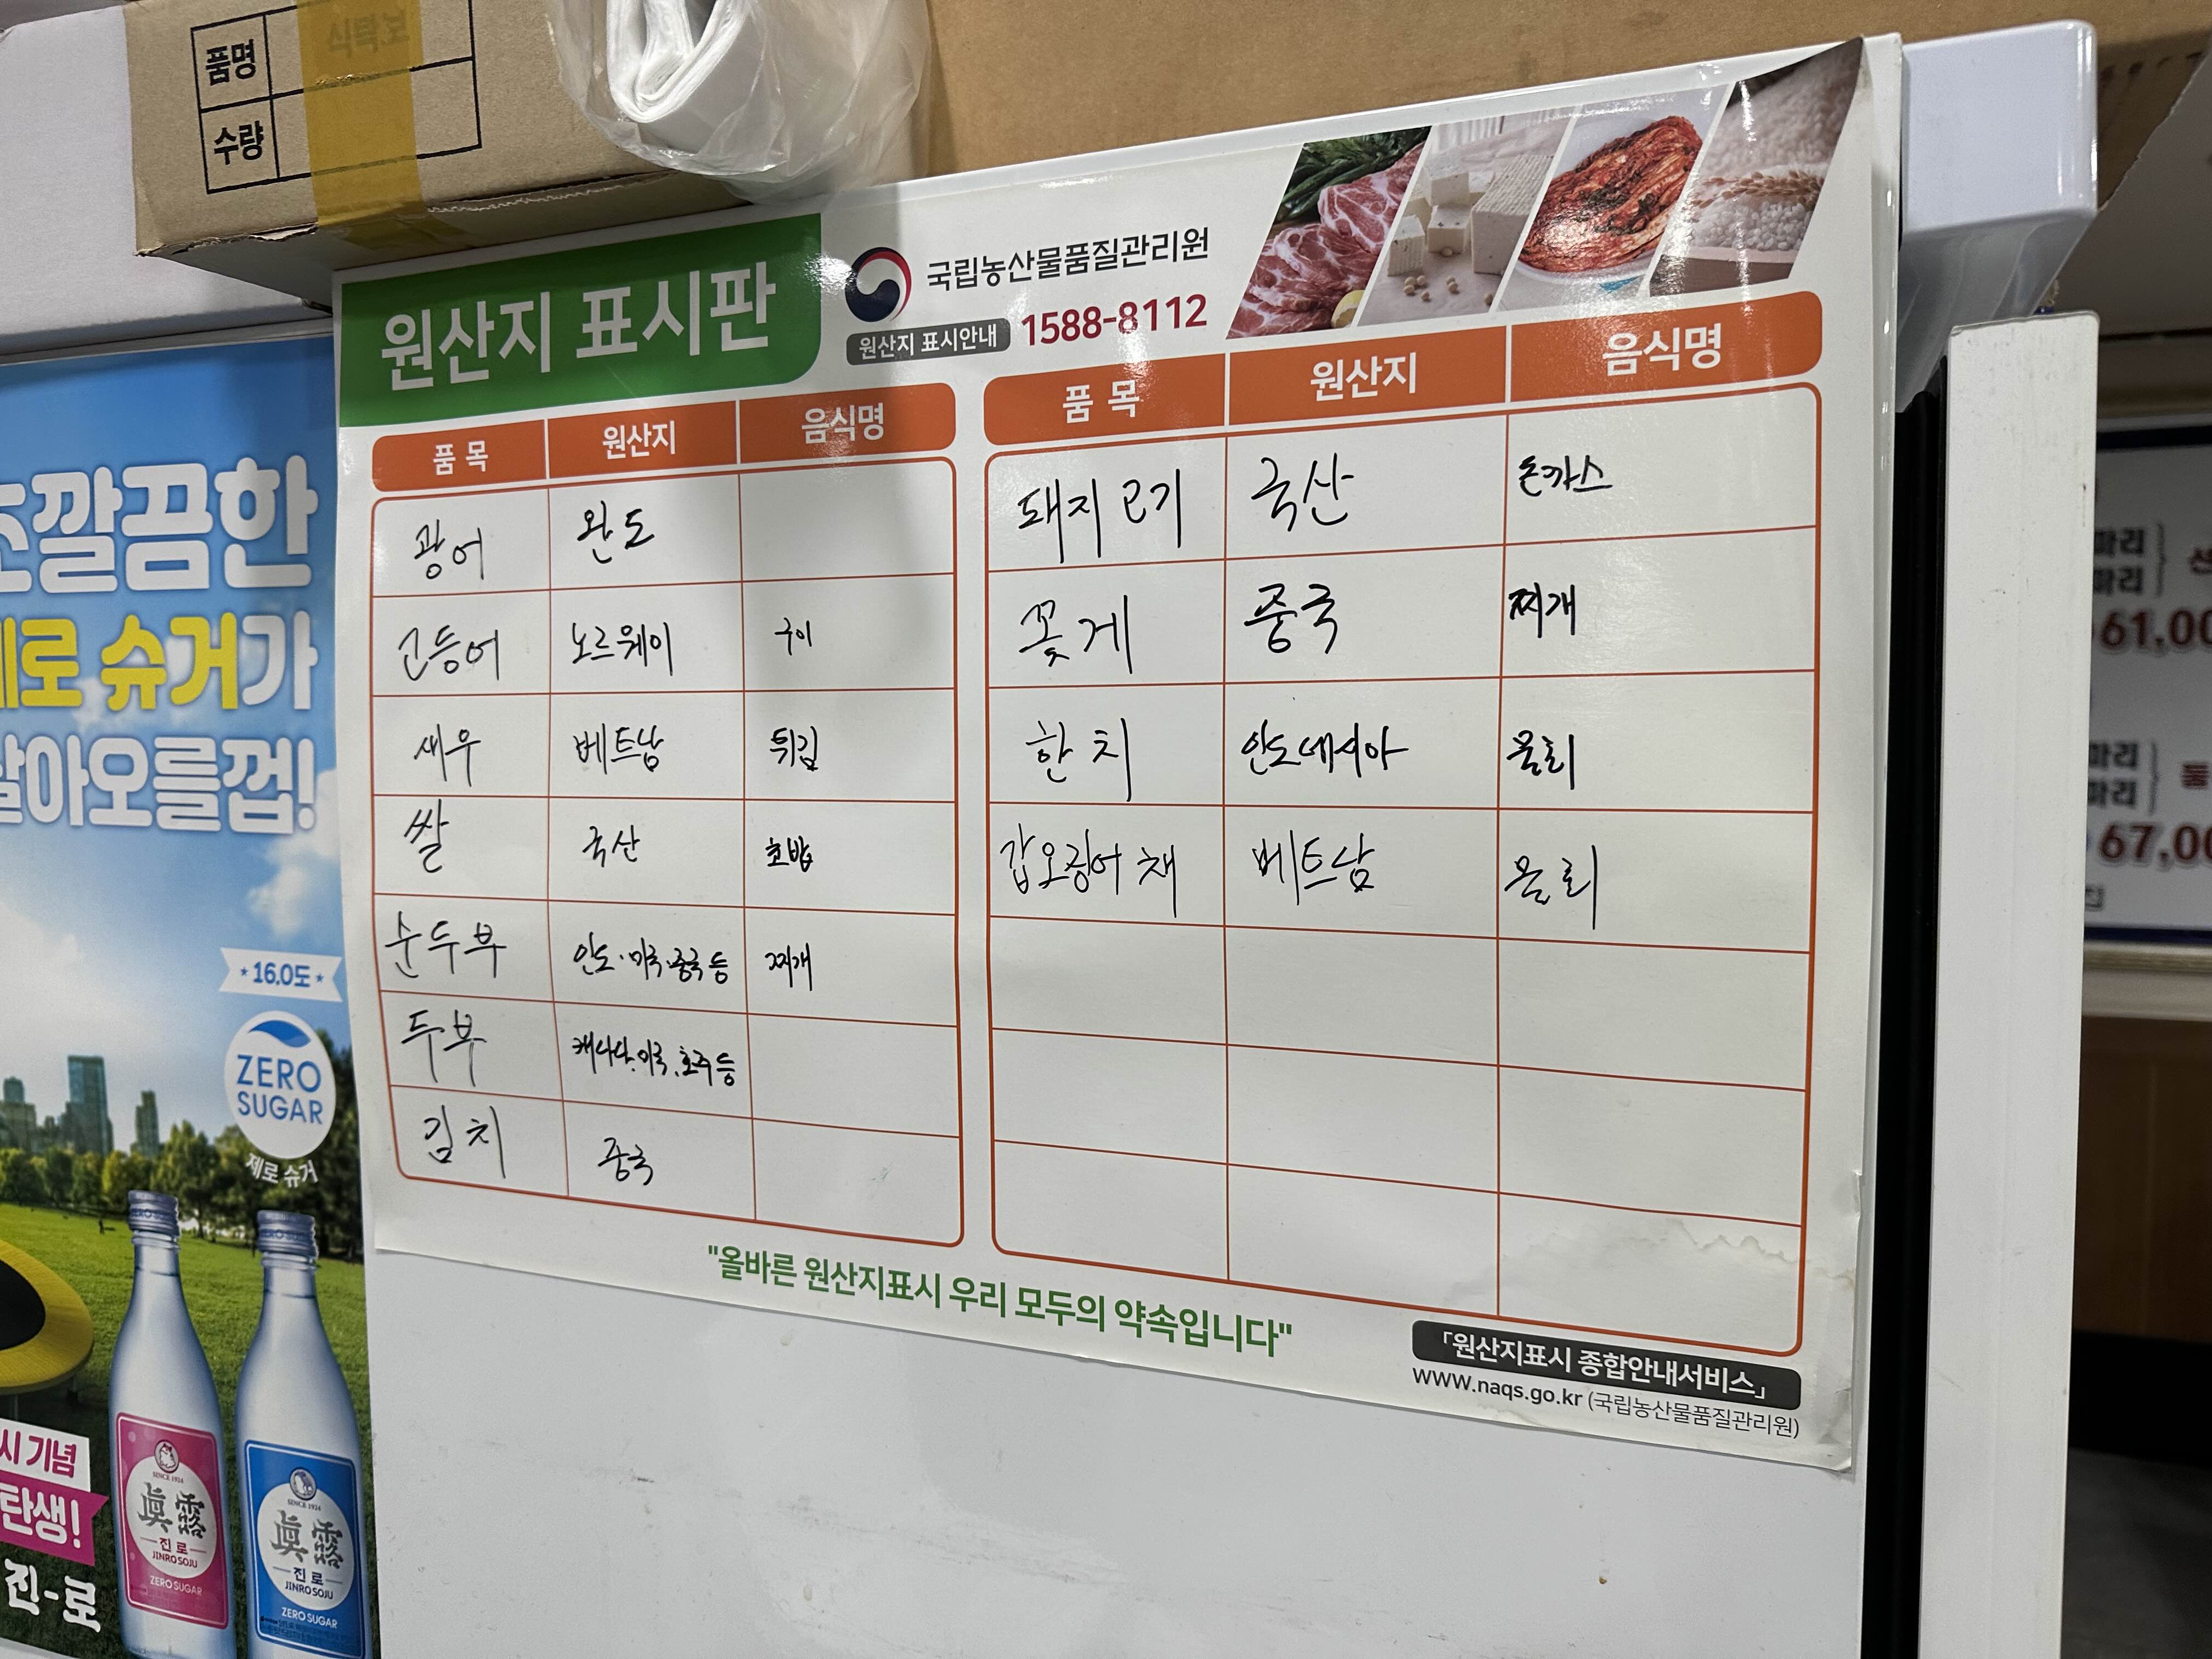 품명 식탁보
수량
원산지 표시판
국립농산물품질관리원
원산지 표시안내 1588-8112
품 목 원산지 음식명
광어 완도
고등어 노르웨이 구이
새우 베트남 튀김
쌀 국산 초밥
순두부 인도·미국·중국 등 찌개
두부 캐나다.미국.호주 등
김치 중국
품 목 원산지 음식명
돼지고기 국산 돈까스
꽃게 중국 찌개
한치 인도네시아 물회
갑오징어 채 베트남 물회
"올바른 원산지표시 우리 모두의 약속입니다"
「원산지표시 종합안내서비스」
www.naqs.go.kr (국립농산물품질관리원)
깔끔한
제로 슈거가
날아오를껍!
16.0도
ZERO
SUGAR
제로 슈거
시 기념
탄생!
진-로
SINCE 1924
眞露
진로
JINRO SOJU
ZERO SUGAR
SINCE 1924
眞露
진로
JINRO SOJU
ZERO SUGAR
마리
마리
61,00
마리
마리
67,00